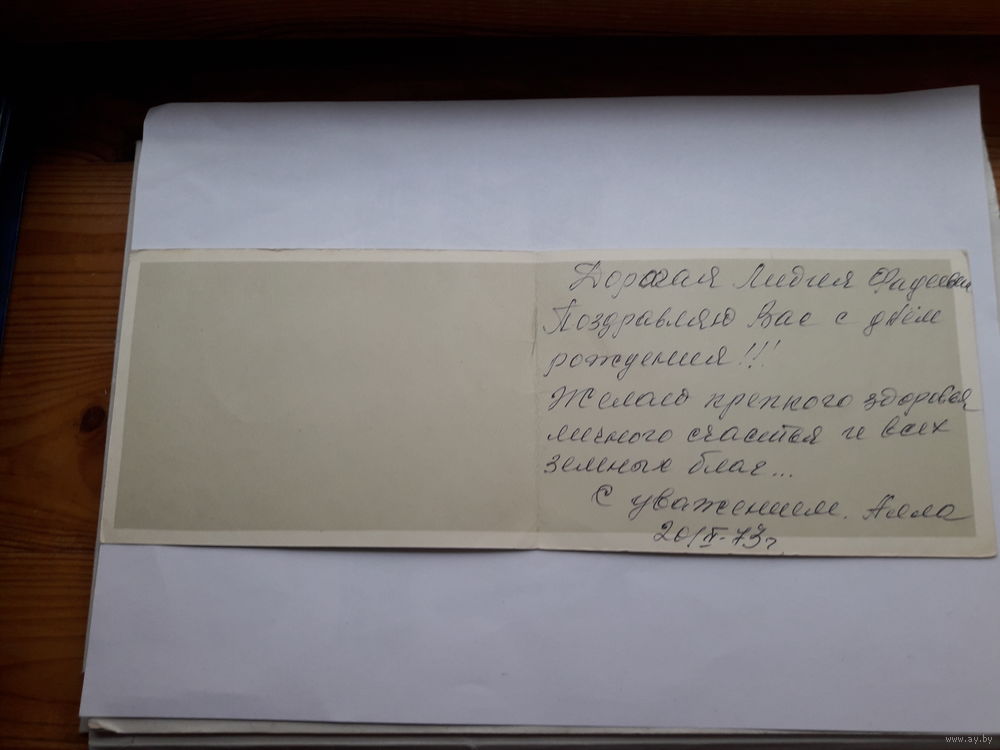 Дорогая Лидия Фадеевна
Поздравляю Вас с днём
рождения!!!
Желаю крепкого здоровья
личного счастья и всех
земных благ...
С уважением. Алла
20/X-73г.
www.ay.by